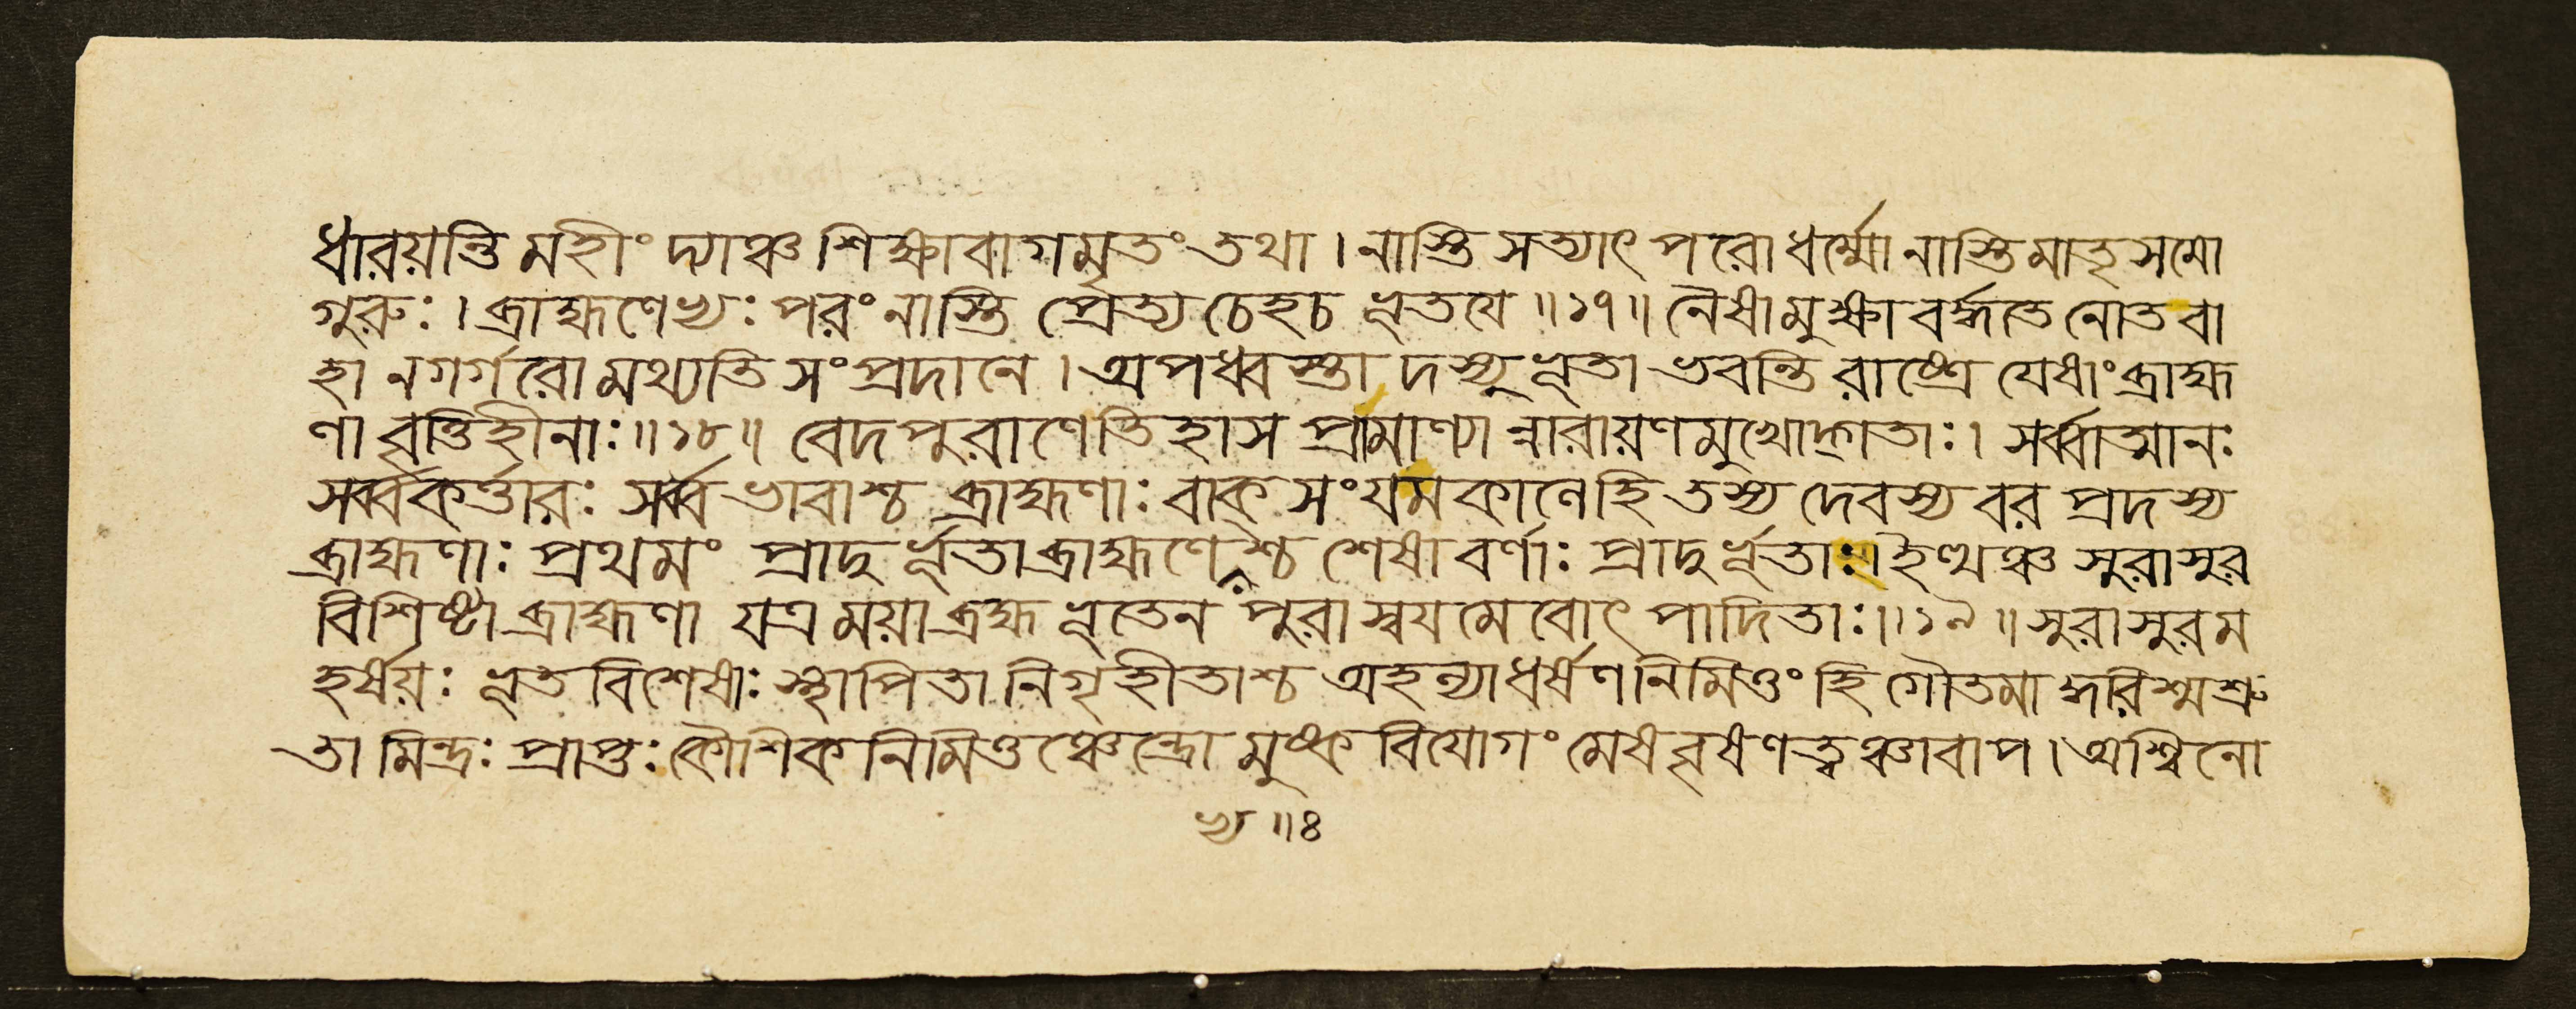 ধারয়ন্তি মহীং দ্যাঞ্চ শিক্ষাবাগমৃতং তথা । নাস্তি সত্যাৎ পরোধর্ম্মো নাস্তি মাতৃসমো
গুরুঃ । ব্রাহ্মণেভ্যঃ পরং নাস্তি প্রেত্য চেহ চ ভূতয়ে ॥ ১৭ ॥ নৈষামুক্ষা বর্দ্ধতে নোত বা
হা ন গর্গরো মথ্যতি সংপ্রদানে । অপধ্বস্তা দস্যুভূতা ভবন্তি রাষ্ট্রে যেষাং ব্রাহ্ম
ণা বৃত্তিহীনাঃ ॥ ১৮ ॥ বেদপুরাণেতিহাস প্রামাণ্যা ন্নারায়ণমুখোদ্গতাঃ । সর্ব্বাত্মানঃ
সর্ব্বকর্ত্তারঃ সর্ব্বভাবাশ্চ ব্রাহ্মণাঃ বাক্‌সংযমকালে হি তস্য দেবস্য বর প্রদস্য
ব্রাহ্মণাঃ প্রথমং প্রাদুর্ভূতা ব্রাহ্মণেভ্যশ্চ শেষা বর্ণাঃ প্রাদুর্ভূতাঃ । ইত্থঞ্চ সুরাসুর
বিশিষ্টা ব্রাহ্মণা যত্র ময়া ব্রহ্মভূতেন পুরা স্বয়মেবোৎপাদিতাঃ ॥ ১৯ ॥ সুরাসুরম
হর্ষয়ঃ ভূতবিশেষাঃ স্থাপিতা নিগৃহীতাশ্চ অহল্যাধর্ষণনিমিত্তং হি গৌতমাদ্ধরিশ্মশ্রু
তামিন্দ্রঃ প্রাপ্তঃ কৌশিকনিমিত্তঞ্চেন্দ্রো মুষ্কবিযোগং মেষবৃষণত্বঞ্চাবাপ । অশ্বিনো